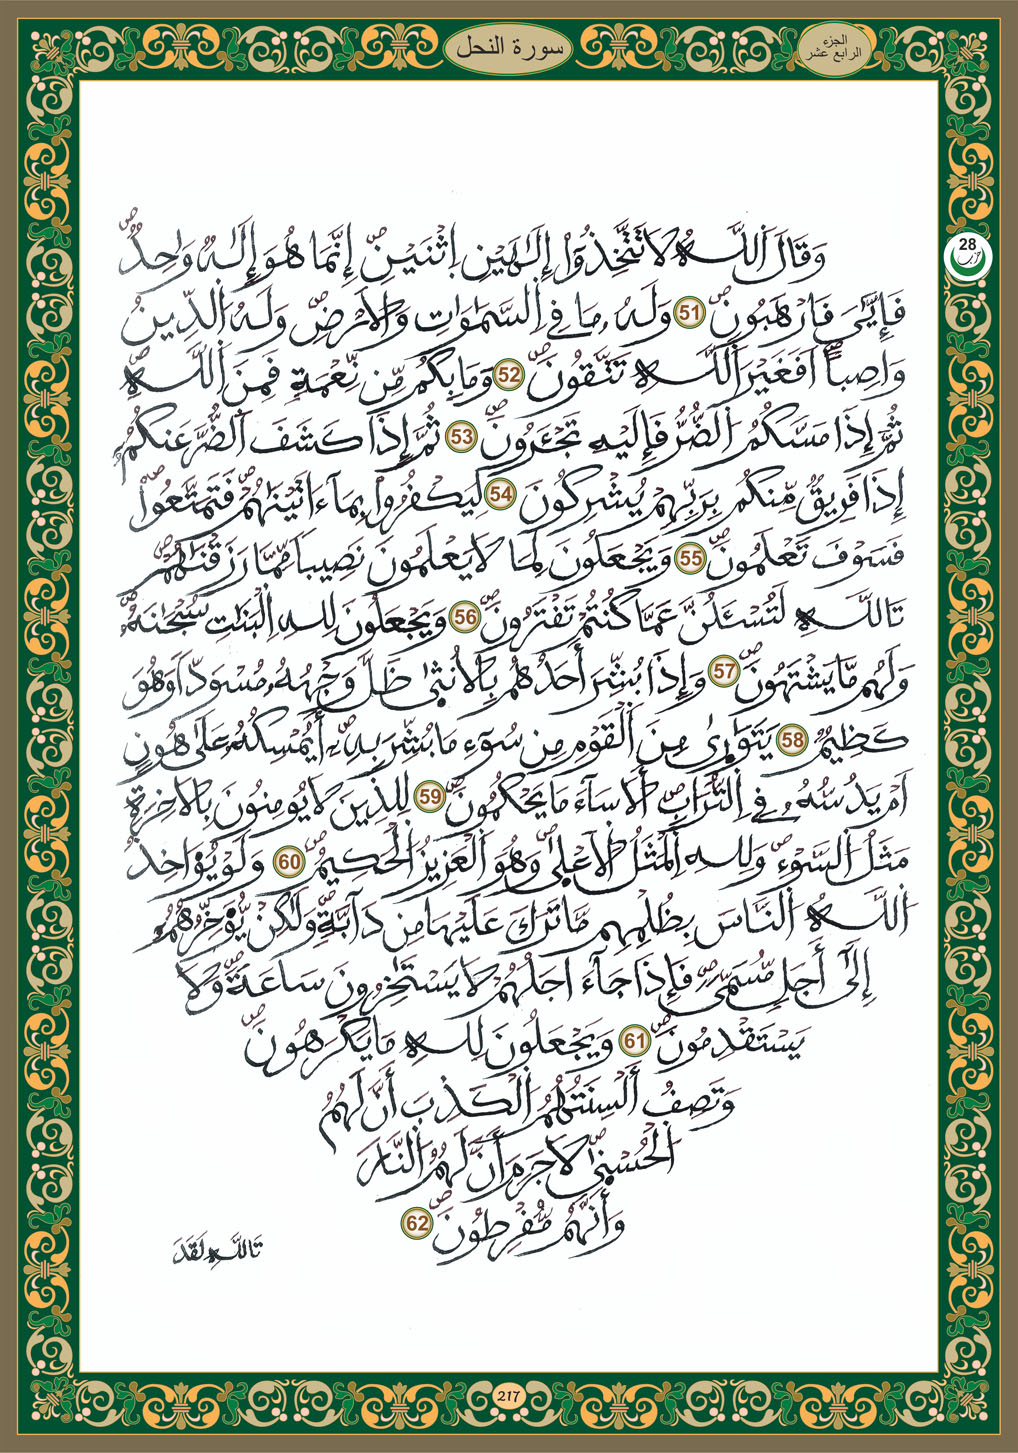 الجزء
الرابع عشر
سورة النحل
28
حزب
وَقَالَ اَللَّهُ لَا تَتَّخِذُوٓاْ إِلَٰهَيْنِ اِثْنَيْنِۖ إِنَّمَا هُوَ إِلَٰهٞ وَٰحِدٞۖ
فَإِيَّٰيَ فَارْهَبُونِۖ 51 وَلَهُۥ مَا فِے اِلسَّمَٰوَٰتِ وَالَارْضِۖ وَلَهُ اُلدِّينُ
وَاصِباًۖ اَفَغَيْرَ اَللَّهِ تَتَّقُونَۖ 52 وَمَا بِكُم مِّن نِّعْمَةٖ فَمِنَ اَللَّهِۖ
ثُمَّ إِذَا مَسَّكُمُ اُلضُّرُّ فَإِلَيْهِ تَجْـَٔرُونَۖ 53 ثُمَّ إِذَا كَشَفَ اَلضُّرَّ عَنكُمُۥٓ
إِذَا فَرِيقٞ مِّنكُم بِرَبِّهِمْ يُشْرِكُونَ 54 لِيَكْفُرُواْ بِمَآ ءَاتَيْنَٰهُمْۖ فَتَمَتَّعُواْۖ
فَسَوْفَ تَعْلَمُونَۖ 55 وَيَجْعَلُونَ لِمَا لَا يَعْلَمُونَ نَصِيباٗ مِّمَّا رَزَقْنَٰهُمْۖ
تَاللَّهِ لَتُسْـَٔلُنَّ عَمَّا كُنتُمْ تَفْتَرُونَۖ 56 وَيَجْعَلُونَ لِلهِ اِلْبَنَٰتِ سُبْحَٰنَهُۥۖ
وَلَهُم مَّا يَشْتَهُونَۖ 57 وَإِذَا بُشِّرَ أَحَدُهُم بِالُانث۪يٰ ظَلَّ وَجْهُهُۥ مُسْوَدّاٗ وَهُوَ
كَظِيمٞ 58 يَتَوَٰر۪يٰ مِنَ اَلْقَوْمِ مِن سُوٓءِ مَا بُشِّرَ بِهِۦٓۖ أَيُمْسِكُهُۥ عَلَىٰ هُونٍ
اَمْ يَدُسُّهُۥ فِے اِلتُّرَابِۖ أَلَا سَآءَ مَا يَحْكُمُونَۖ 59 لِلذِينَ لَا يُومِنُونَ بِالَاخِرَةِ
مَثَلُ اُلسَّوْءِۖ وَلِلهِ اِلْمَثَلُ اُلَاعْل۪يٰۖ وَهُوَ اَلْعَزِيزُ اُلْحَكِيمُۖ 60 وَلَوْ يُؤَاخِذُ
اُللَّهُ اُلنَّاسَ بِظُلْمِهِم مَّا تَرَكَ عَلَيْهَا مِن دَآبَّةٖۖ وَلَٰكِنْ يُّؤَخِّرُهُمُۥٓ
إِلَىٰٓ أَجَلٖ مُّسَمّيٗۖ فَإِذَا جَآءَ اجَلُهُمْ لَا يَسْتَٰخِرُونَ سَاعَةٗۖ وَلَا
يَسْتَقْدِمُونَۖ 61 وَيَجْعَلُونَ لِلهِ مَا يَكْرَهُونَۖ
وَتَصِفُ أَلْسِنَتُهُمُ اُلْكَذِبَ أَنَّ لَهُمُ
اُلْحُسْن۪يٰۖ لَا جَرَمَ أَنَّ لَهُمُ اُلنَّارَ
وَأَنَّهُم مُّفْرِطُونَۖ 62
تَاللَّهِ لَقَدَ
217